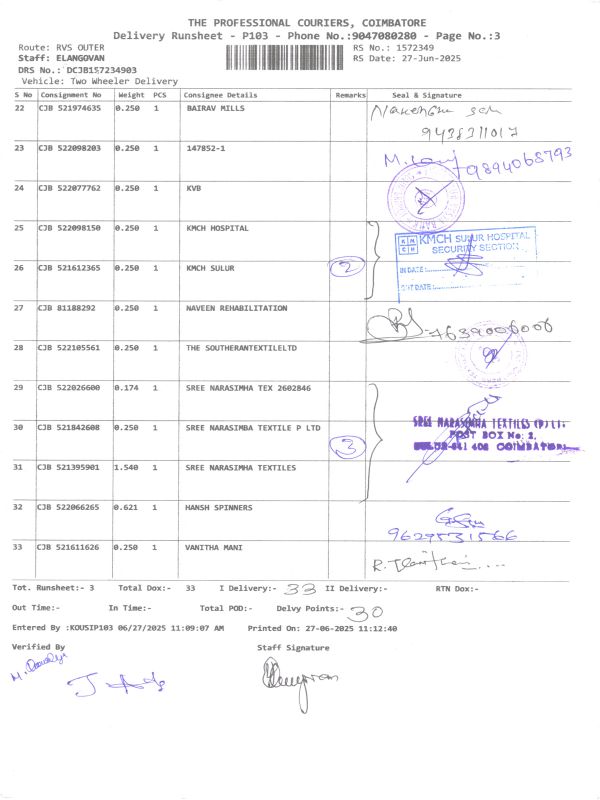 THE PROFESSIONAL COURIERS, COIMBATORE
Delivery Runsheet - P103 - Phone No.:9047080280 - Page No.:3
Route: RVS OUTER RS No.: 1572349
Staff: ELANGOVAN RS Date: 27-Jun-2025
DRS No.: DCJB157234903
Vehicle: Two Wheeler Delivery
S No Consignment No Weight PCS Consignee Details Remarks Seal & Signature
22 CJB 521974635 0.250 1 BAIRAV MILLS
9438311017
23 CJB 522098203 0.250 1 147852-1
9894068793
24 CJB 522077762 0.250 1 KVB
25 CJB 522098150 0.250 1 KMCH HOSPITAL
KMCH KMCH SULUR HOSPITAL
SECURITY SECTION
IN DATE:
OUT DATE:
26 CJB 521612365 0.250 1 KMCH SULUR 2
27 CJB 81188292 0.250 1 NAVEEN REHABILITATION
7639006006
28 CJB 522105561 0.250 1 THE SOUTHERANTEXTILELTD
29 CJB 522026600 0.174 1 SREE NARASIMHA TEX 2602846
30 CJB 521842608 0.250 1 SREE NARASIMBA TEXTILE P LTD 3
SREE NARASIMHA TEXTILES (P) LT.
POST BOX No: 2,
SULUR-641 402 COIMBATORE
31 CJB 521395901 1.540 1 SREE NARASIMHA TEXTILES
32 CJB 522066265 0.621 1 HANSH SPINNERS
9629531566
33 CJB 521611626 0.250 1 VANITHA MANI
Tot. Runsheet:- 3 Total Dox:- 33 I Delivery:- 33 II Delivery:- RTN Dox:-
Out Time:- In Time:- Total POD:- Delvy Points:- 30
Entered By :KOUSIP103 06/27/2025 11:09:07 AM Printed On: 27-06-2025 11:12:40
Verified By Staff Signature